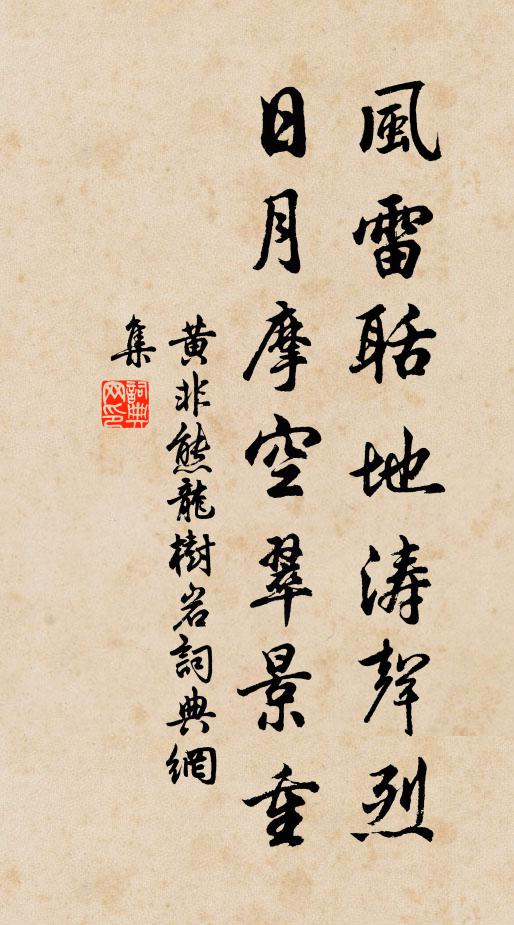 風雷聒地濤聲烈
日月摩空翠景重
黃非熊龍樹岩詞典網
集
詞典
网印